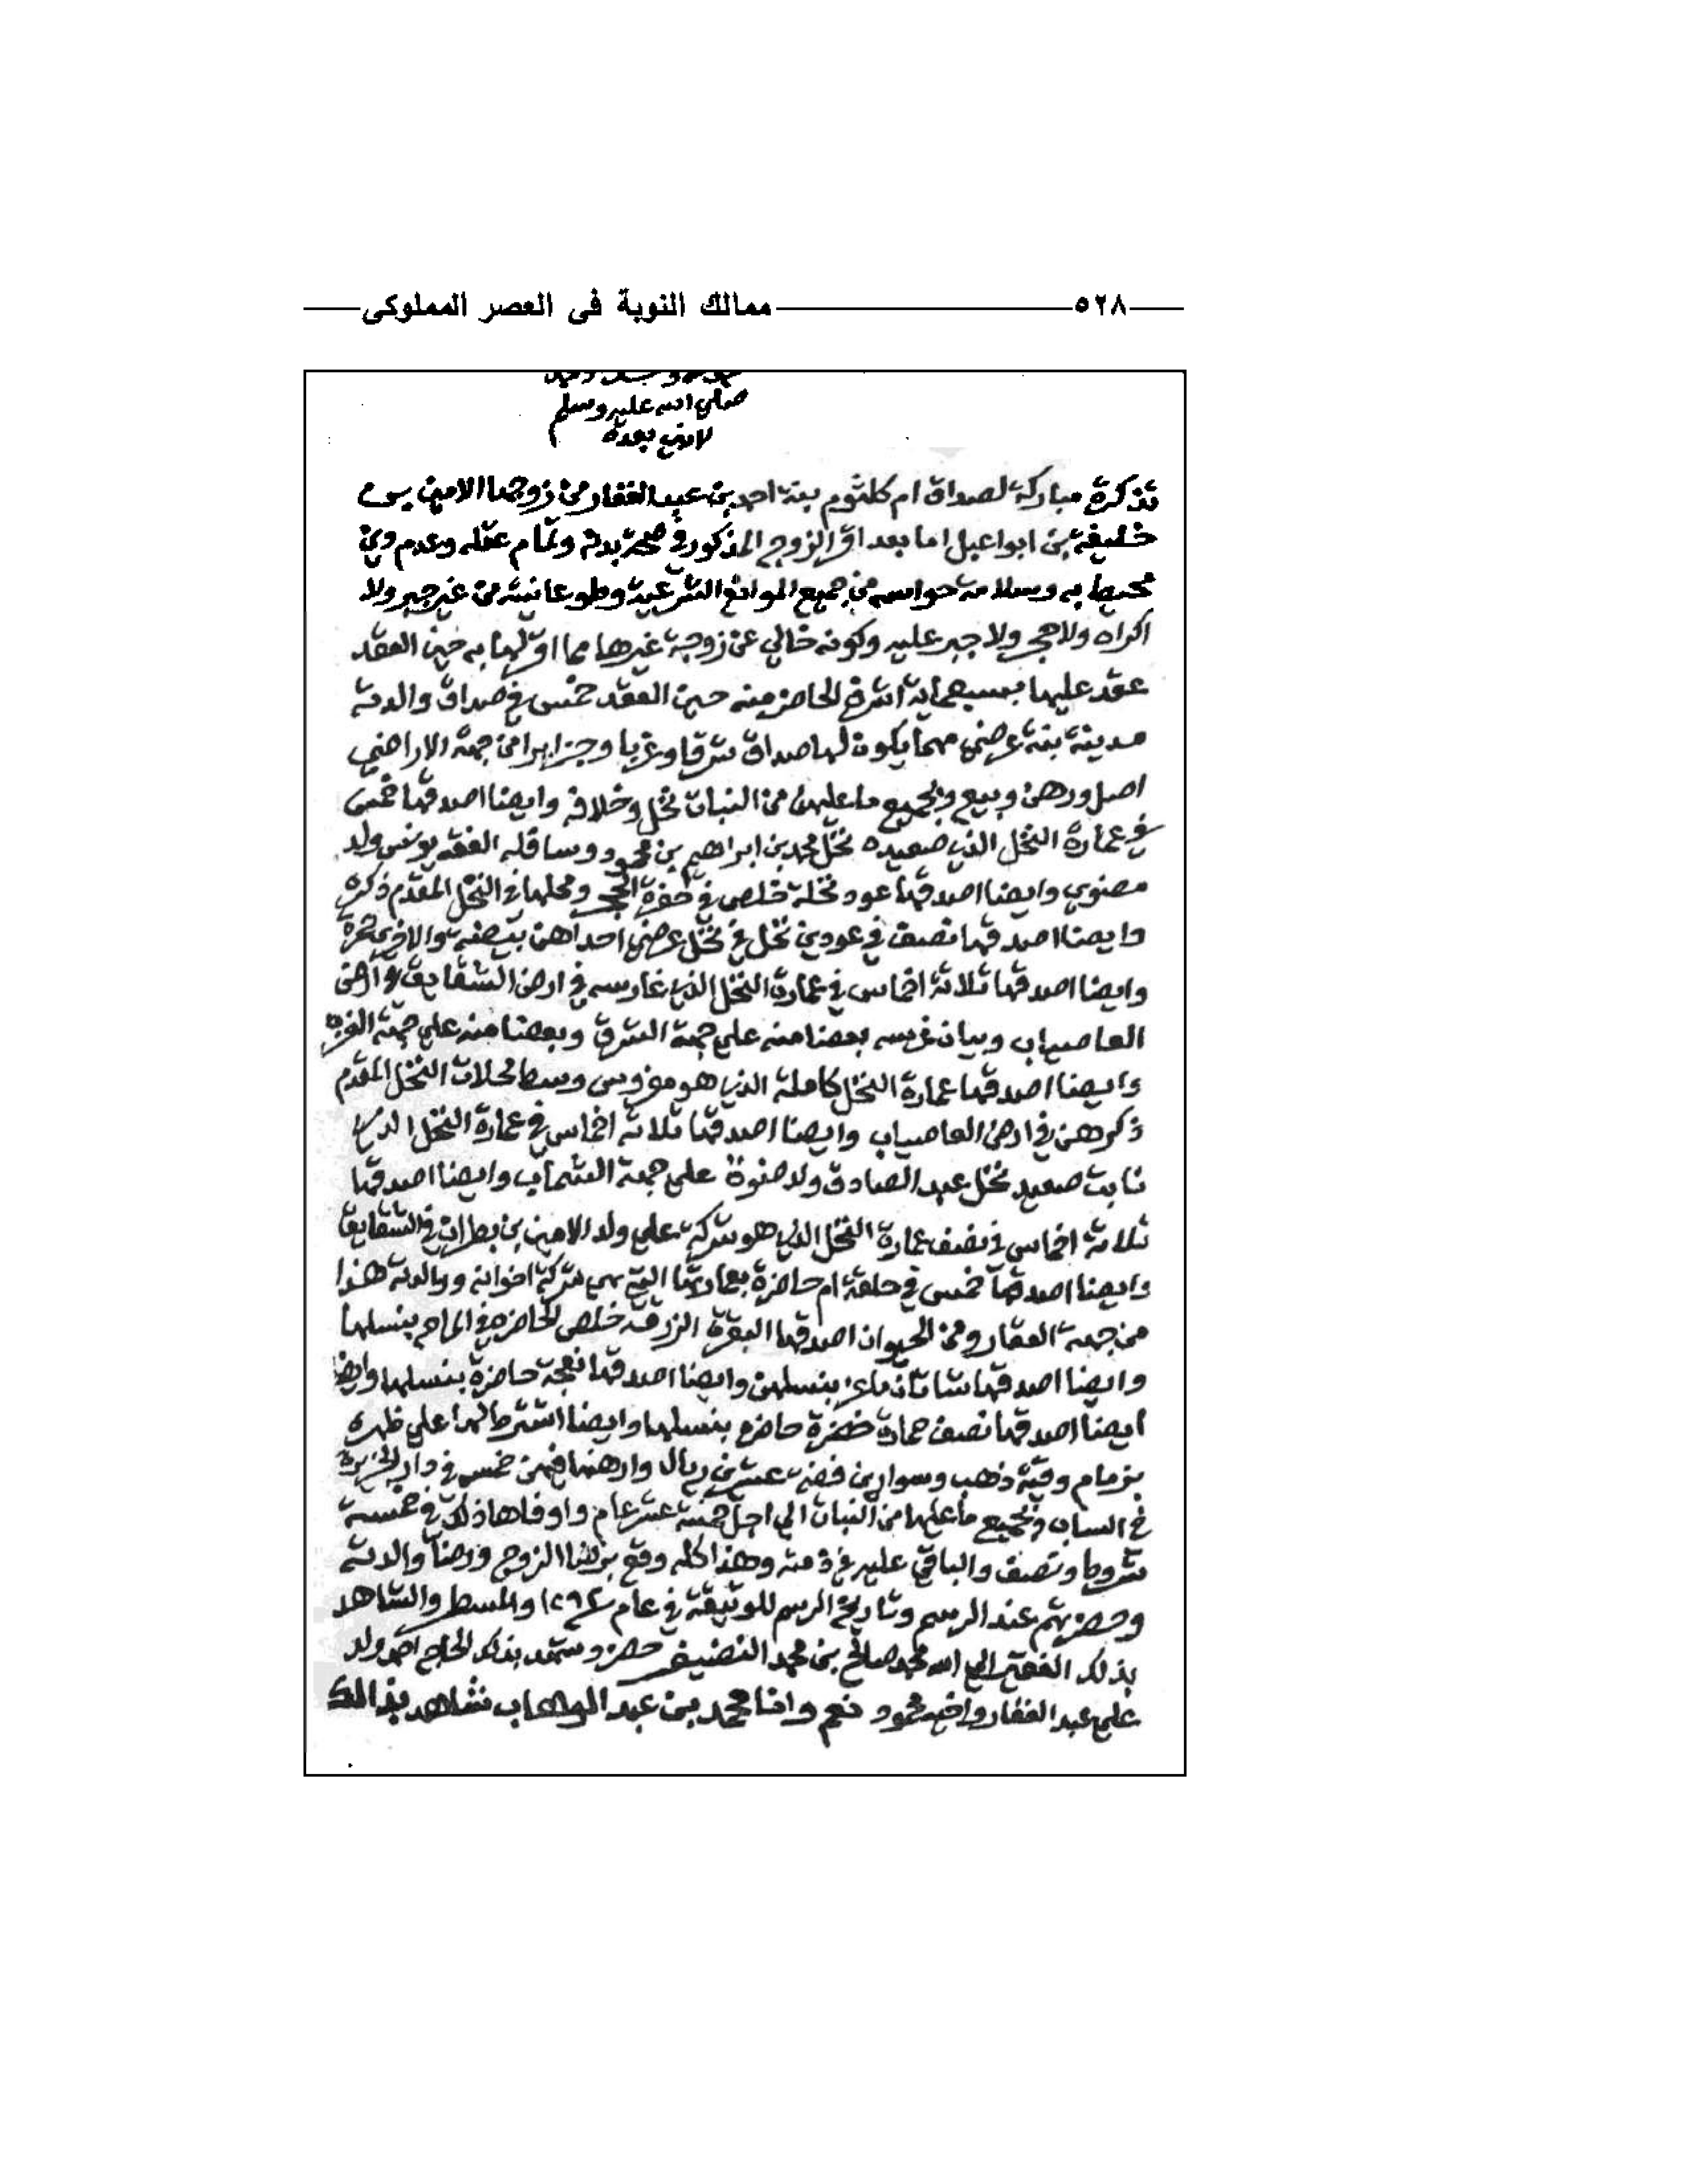 ٥٢٨ ممالك النوبة فى العصر المملوكى
صلي الله عليه وسلم
لا نبي بعده
تذكرة مباركة لصداق ام كلثوم بنت احمد بن عبد الغفار من زوجها الامين
خليفة بن ابو اعيل اما بعد اقر الزوج المذكور في صحة بدنه وتمام عقله وعدم
محيط به وسلامة حواسه من جميع الموانع الشرعية وطوعانيته من غير جبر ولا
اكراه ولا حجر ولا جبر عليه وكونه خالي عن زوجة غيرها مما اقر لها به حين العقد
عقد عليها الحاضر منه حين العقد خمس في صداق والدته
مدينة بنت عرضي مهما يكون لها صداق شرقا وغربا وجزايرا من جهة الاراضي
اصل ورهن وبيع وبجميع ما عليهن من النبات نخل وخلافه وايضا اصدقها خمس
في عمارة النخل الذي صعيده نخل محمد بن ابراهيم بن محمود وسافله الفقه يونس ولد
مصنوي وايضا اصدقها عود نخلة خلص في حفرة الحجر ومحلها في النخل المقدم ذكره
وايضا اصدقها نصف في عودين نخل في نخل عرضي احداهن والاخرى
وايضا اصدقها ثلاثة اخماس في عمارة النخل الذي غارسه في ارض الشقايق وارض
العاصياب وبيان غرسه بعضا منه علي جهة الشرق وبعضا منه علي جهة الغرب
وايضا اصدقها عمارة النخل كاملة الذي هو مغروس وسط محلات النخل المقدم
ذكرهن في ارض العاصياب وايضا اصدقها ثلاثة اخماس في عمارة النخل الذي
نابت صعيد نخل عبد الصادق ولد صنوة علي جهة الشماب وايضا اصدقها
ثلاثة اخماس في نصف عمارة النخل الذي هو شركة علي ولد الامين بن بطران في الشقايق
وايضا اصدقها خمس في حلقة ام حاضرة بعمارتها التي هي شركة اخوانه ووالدته هذا
من جهة العقار ومن الحيوان اصدقها البقرة الزرقة خلص الحاضرة في المراح بنسلها
وايضا اصدقها شاتان بنسلهن وايضا اصدقها نعجة حاضرة بنسلها وايضا
ايضا اصدقها نصف حمارة خضرة حاضره بنسلها وايضا اشترط لها علي ظهره
بزمام وقية ذهب وسوارين فضة عشرين ريال وارهنها فيهن خمسه في دار الجزيرة
في الساب وبجميع ما عليها من النبات الي اجل خمسة عشر عام واوفاها ذلك في خمسة
شروط ونصف والباقي عليه في ذمته وهذا كله وقع برضا الزوج ورضا والدته
وحضرتهم عند الرسم وتاريخ الرسم للوثيقة في عام ١٢٩٢ والمسطر والشاهد
بذلك الفقير الي الله محمد صالح بن محمد حضر وشهد بذلك الحاج احمد ولد
علي عبد الغفار واخيه محمود نعم وانا محمد بن عبد الوهاب نشاهد بذالك